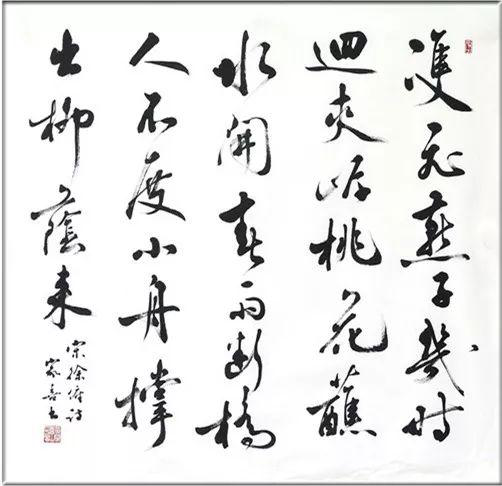 雙飛燕子幾時
迴夾岸桃花蘸
水開春雨斷橋
人不度小舟撑
出柳蔭来
宋徐俯詩
家喜书